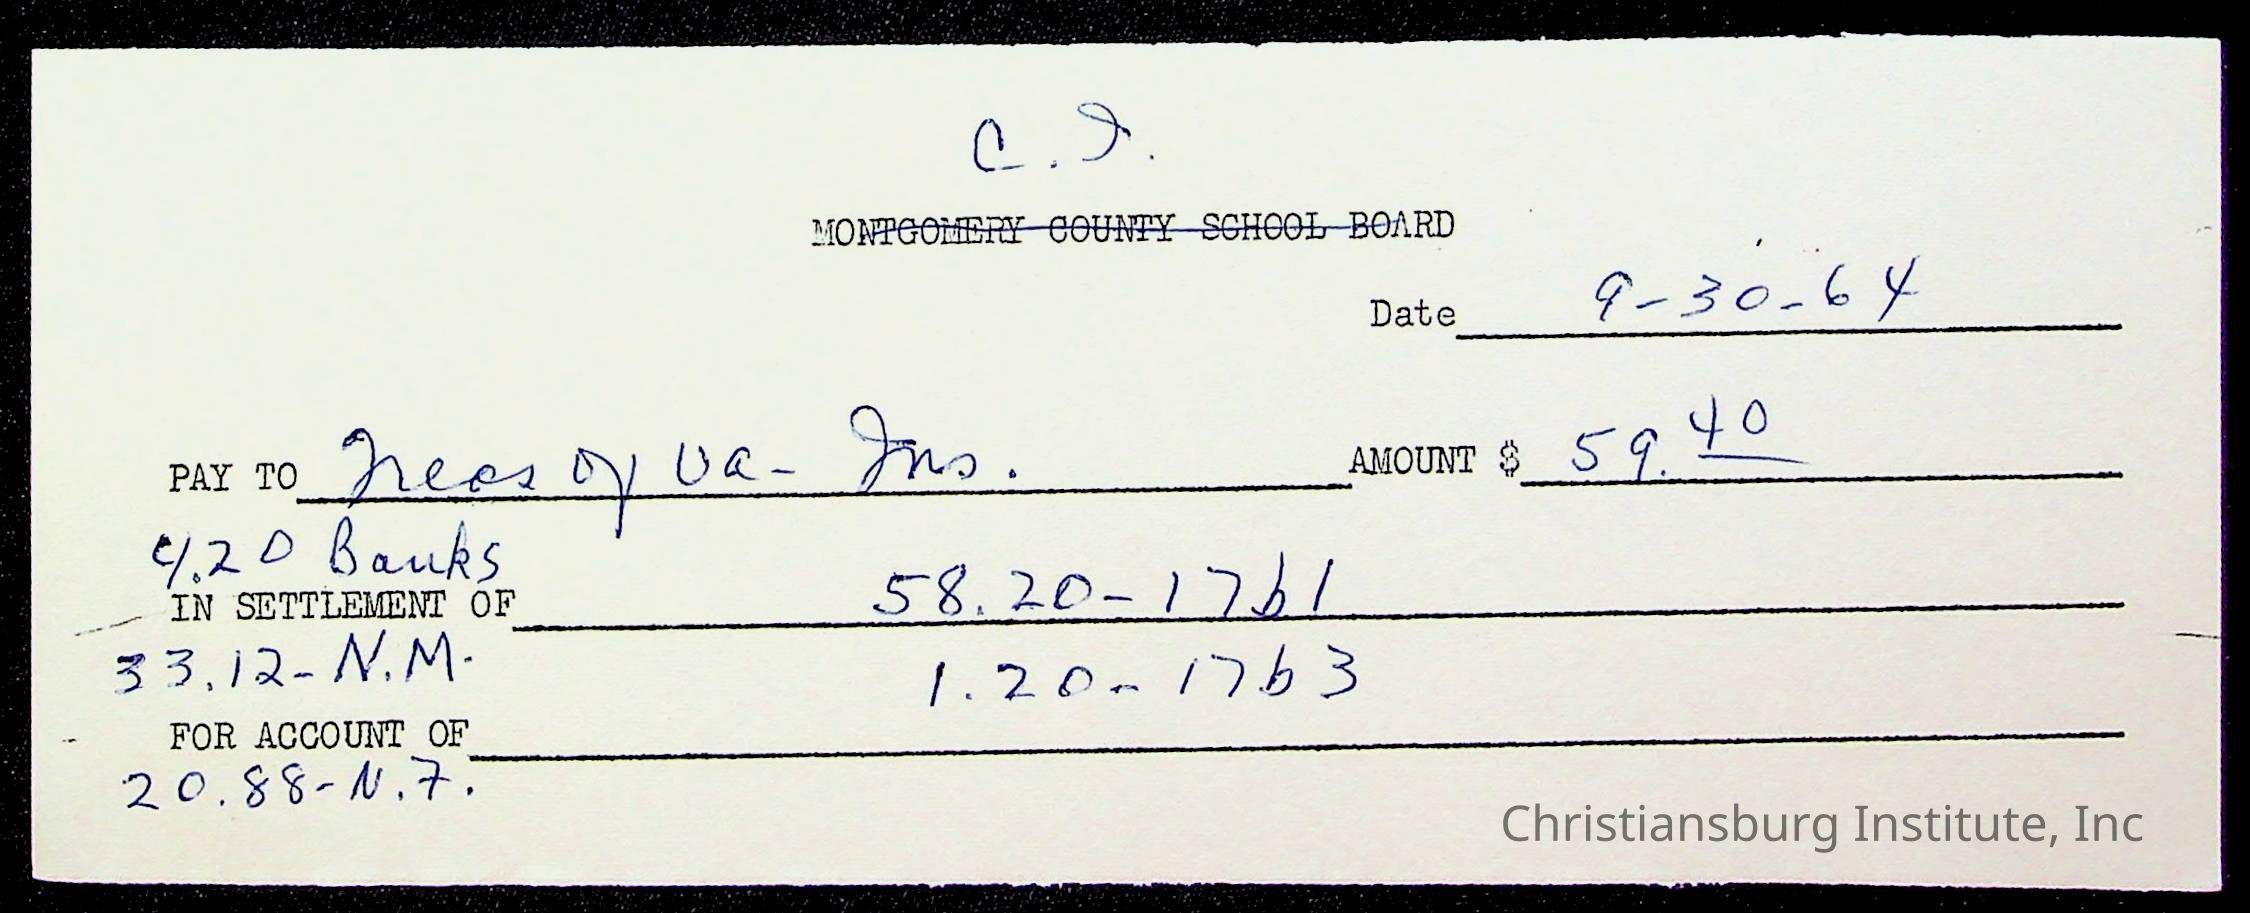 C. I.
MONTGOMERY COUNTY SCHOOL BOARD
Date 9-30-64
PAY TO Treas of Va- Ins. AMOUNT $ 59.40
4.20 Banks
IN SETTLEMENT OF 58.20-17b1
33.12-N.M.
1.20-17b3
FOR ACCOUNT OF
20.88-N.F.
Christiansburg Institute, Inc